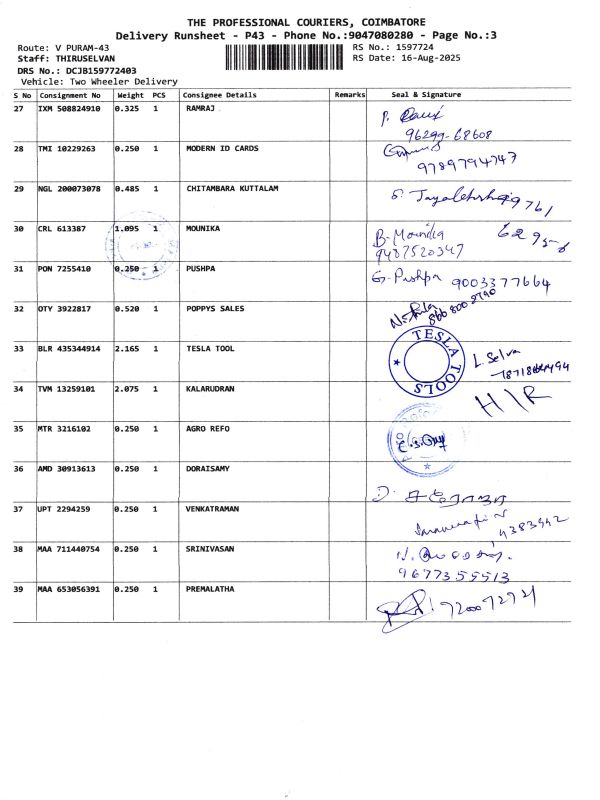 THE PROFESSIONAL COURIERS, COIMBATORE
Delivery Runsheet - P43 - Phone No.:9047080280 - Page No.:3
Route: V PURAM-43 RS No.: 1597724
Staff: THIRUSELVAN RS Date: 16-Aug-2025
DRS No.: DCJB159772403
Vehicle: Two Wheeler Delivery
S No Consignment No Weight PCS Consignee Details Remarks Seal & Signature
27 IXM 508824910 0.325 1 RAMRAJ
96299-68608
28 TMI 10229263 0.250 1 MODERN ID CARDS
9789794747
29 NGL 200073078 0.485 1 CHITAMBARA KUTTALAM
30 CRL 613387 1.095 1 MOUNIKA B-Mounika
9487520347
31 PON 7255410 0.250 1 PUSHPA G-Pushpa 9003377664
32 OTY 3922817 0.520 1 POPPYS SALES
33 BLR 435344914 2.165 1 TESLA TOOL TESLA TOOLS L.Selva
34 TVM 13259101 2.075 1 KALARUDRAN H/R
35 MTR 3216102 0.250 1 AGRO REFO
36 AMD 30913613 0.250 1 DORAISAMY
37 UPT 2294259 0.250 1 VENKATRAMAN
38 MAA 711440754 0.250 1 SRINIVASAN
9677355513
39 MAA 653056391 0.250 1 PREMALATHA